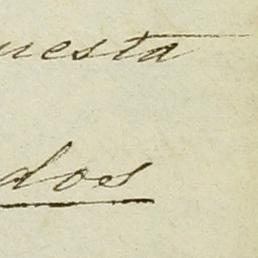 uesta
dos